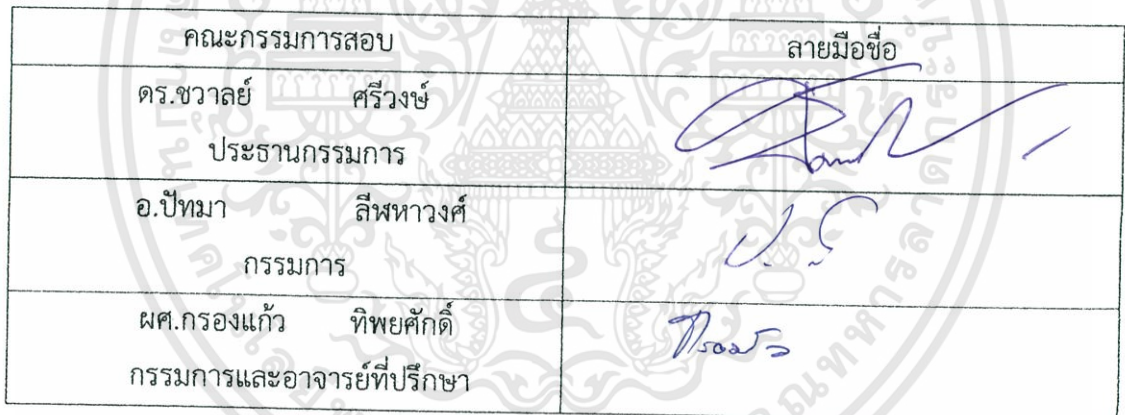 คณะกรรมการสอบ ลายมือชื่อ
ดร.ชวาลย์ ศรีวงษ์
ประธานกรรมการ
อ.ปัทมา ลีฬหาวงศ์
กรรมการ
ผศ.กรองแก้ว ทิพยศักดิ์
กรรมการและอาจารย์ที่ปรึกษา